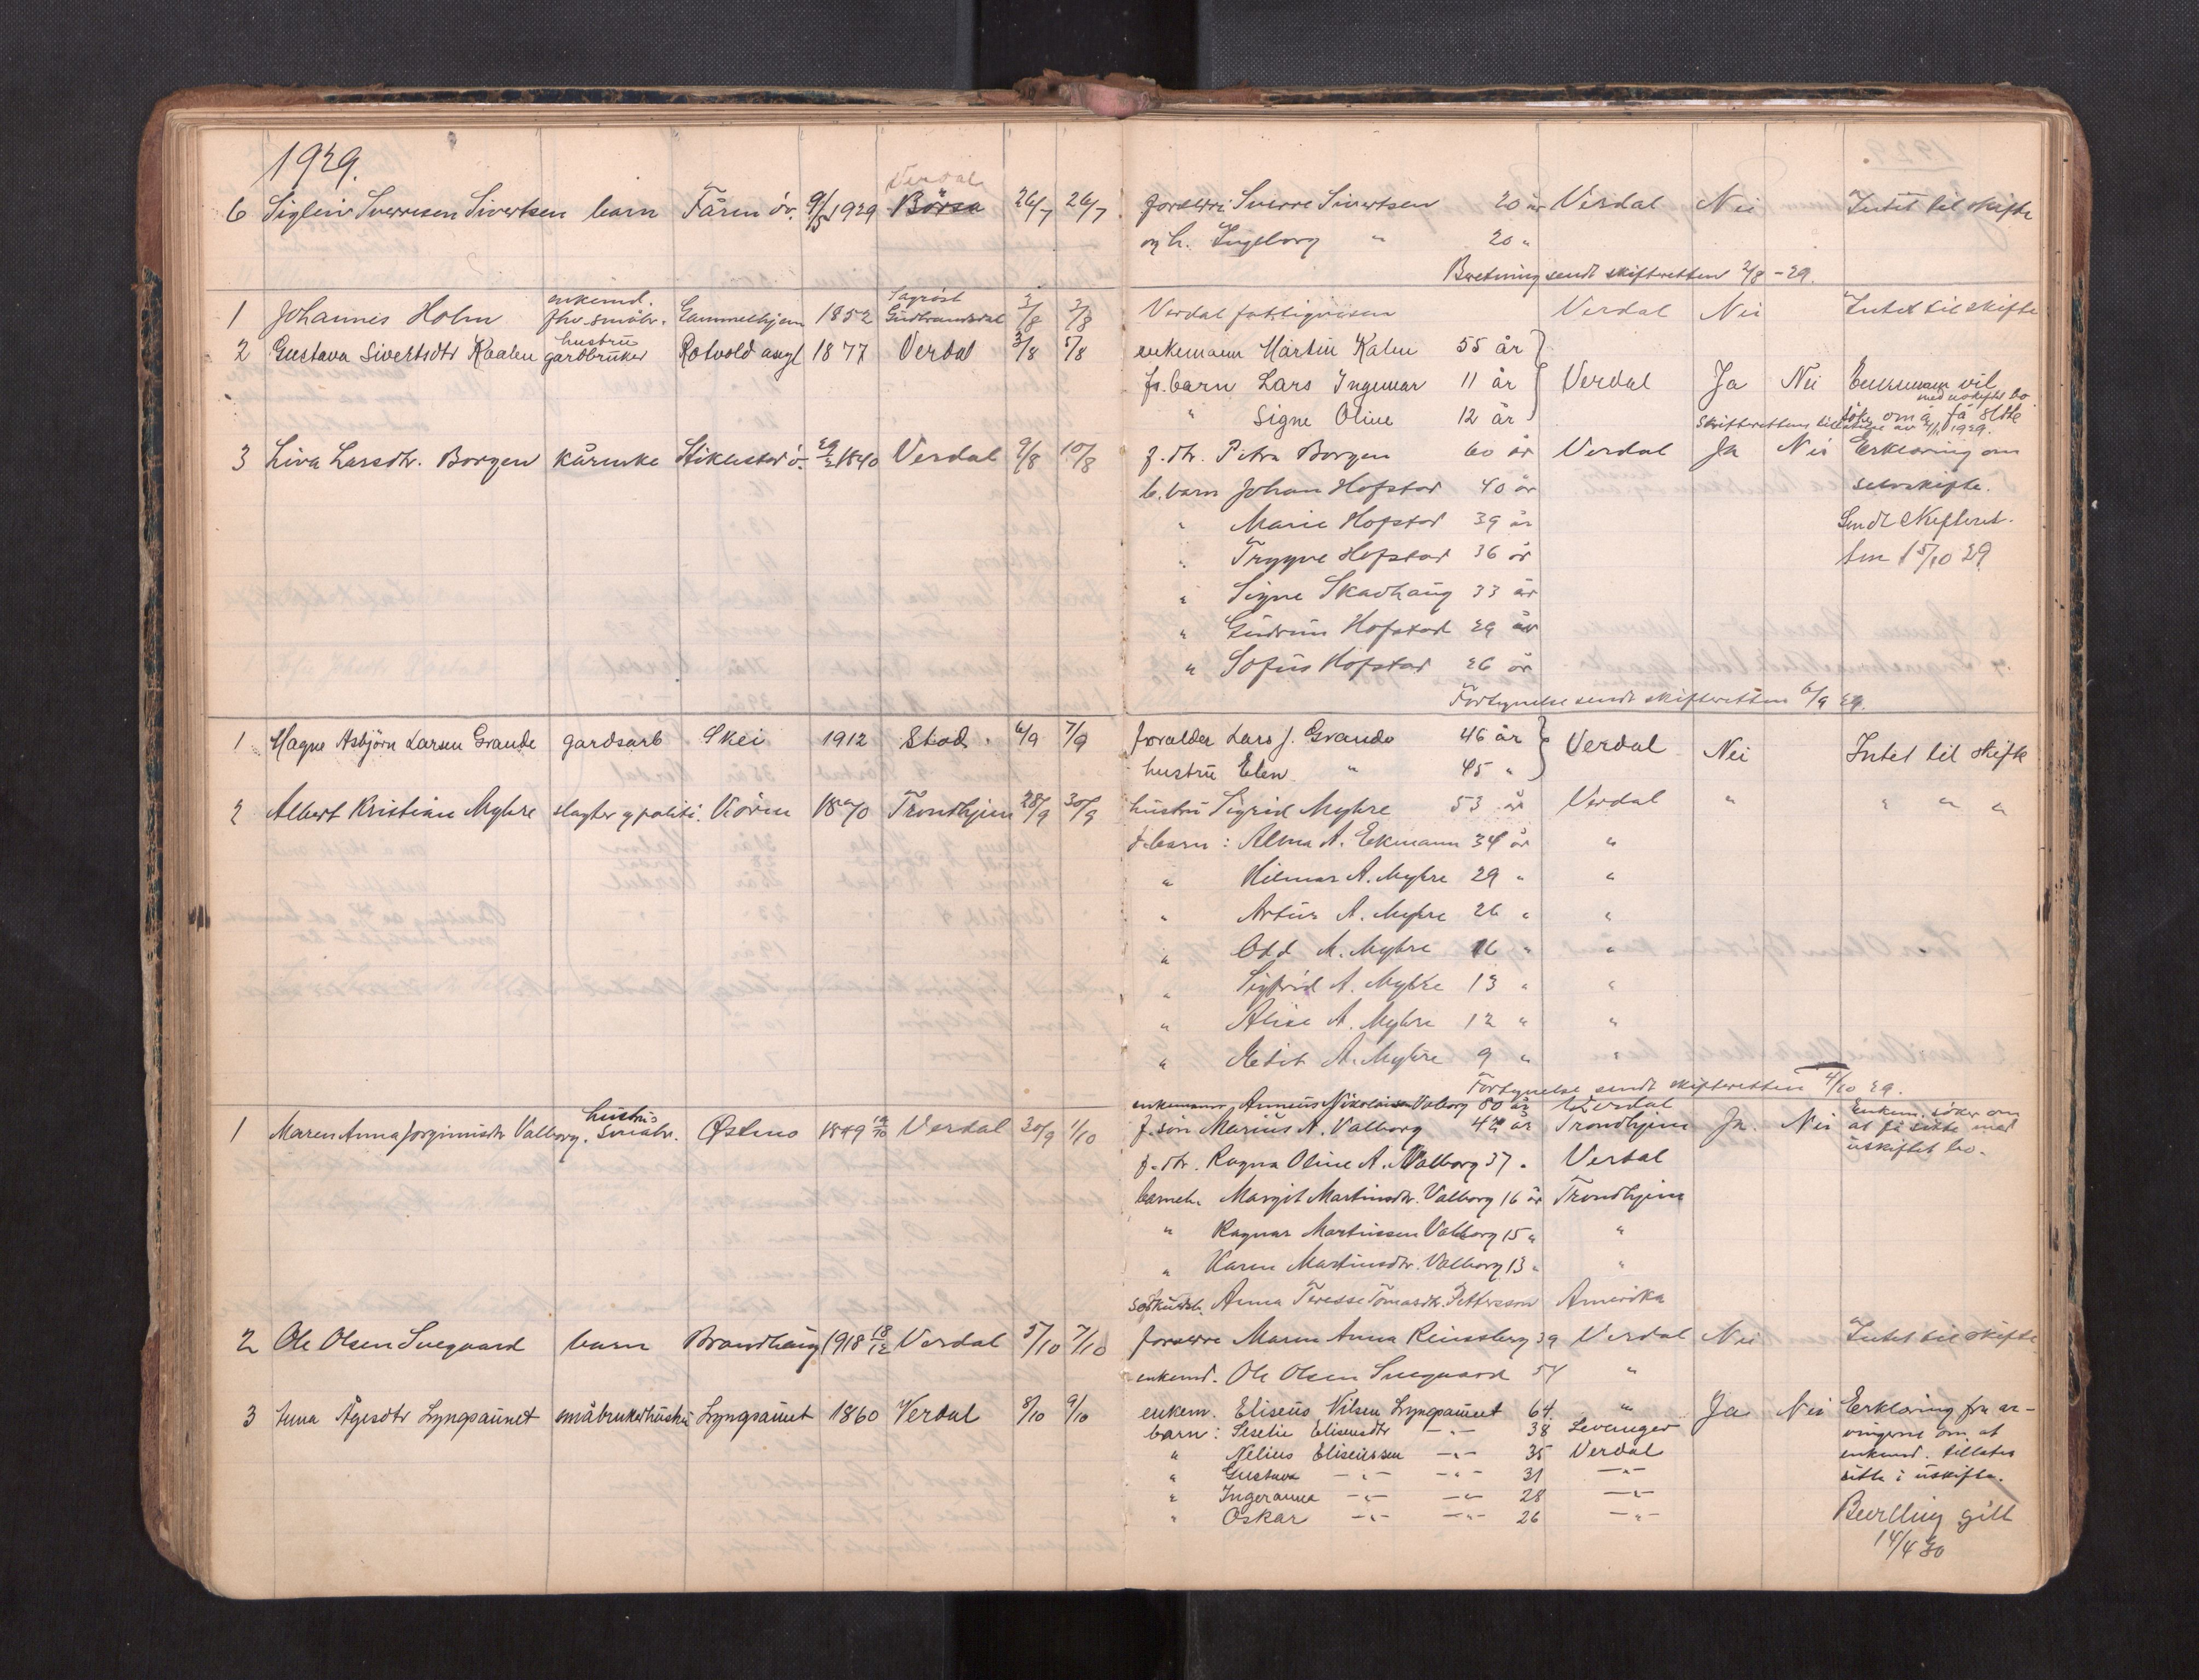 1929.
Verdal
6 Sigleiv Sverresen Sivertsen barn Fåren ö. 9/5 1929 Börsa 26/7 26/7 foreldre Sverre Sivertsen 20 år Verdal Nei Intet til skifte
og h. Ingeborg " 20 "
Beretning sendt skifteretten 2/8 - 29.
1 Johannes Holm enkemd. fhv. småbr. Gammelhjem 1852 Gudbrandsdal 2/8 3/8 Verdal fattigvesen Verdal Nei Intet til skifte
2 Gustava Sivertsdtr Kaalen hustru gardbruker Rotvold asyl 1877 Verdal 3/8 5/8 enkemann Martin Kalen 55 år
fs. barn Lars Ingemar 11 år Verdal Ja Nei Enkemann vil
" Signe Oline 12 år söke om å få sitte med uskiftet bo
Skifterettens tillatelse av 1929.
3 Liva Larsdtr. Borgen kårenke Stiklestad ö. 29/2 1840 Verdal 9/8 10/8 f. dtr. Petra Borgen 60 år Verdal Ja Nei Erklæring om
b. barn Johan Hofstad 40 år selvskifte.
" Marie Hofstad 39 år Sendt skifteret-
" Trygve Hofstad 36 år ten 15/10 29
" Signe Skavhaug 33 år
" Gudrun Hofstad 29 år
" Sofus Hofstad 26 år
Fortegnelse sendt skifteretten 6/9 29.
1 Magne Asbjörn Larsen Grande gardsarb Skei 1912 Stod. 6/9 7/9 foreldre Lars J. Grande 46 år Verdal Nei Intet til skifte
hustru Elen " 45 "
2 Albert Kristian Myhre slagter og politi. Kören 1870 Trondhjem 28/9 30/9 hustru Sigrid Myhre 53 år Verdal " " " "
f. barn: Alma A. Eckmann 34 år "
" Hilmar A. Myhre 29 " "
" Artur A. Myhre 26 " "
" Odd A. Myhre 16 " "
" Sigfrid A. Myhre 13 " "
" Alise A. Myhre 12 " "
" Edit A. Myhre 9 " "
Fortegnelse sendt skifteretten 4/10 29.
enkemann Anneus Nikolaisen Valborg 80 år Verdal
1 Maren Anna Jorginusdtr Valborg. hustru småbr. Östmo 1849 Verdal 30/9 1/10 f. sön Marius A. Valborg 42 år Trondhjem Ja. Nei Enkem. söker om at få sitte med uskiftet bo.
f. dtr. Ragna Oline A. Valborg 37 " Verdal
barneb. Margit Martinsdtr. Valborg 16 år Trondhjem
" Ragnar Martinsen Valborg 15 " "
" Karen Martinsdtr. Valborg 13 " "
Anna Teresse Tomasdtr. Pettersson Amerika
2 Ole Olsen Suegaard barn Brandhaug 1918 18/12 Verdal 5/10 7/10 foreldre Maren Anna Reinsberg 39 Verdal Nei Intet til skifte
enkemd. Ole Olsen Suegaard 54 "
3 Anna Ågesdtr Lyngsaunet småbrukerhustru Lyngsaunet 1860 Verdal 8/10 9/10 enkem. Eliseus Nilsen Lyngsaunet 64. " Ja Nei Erklæring fra ar-
barn: Seselie Eliseusdtr -"- 38 Levanger vingerne om at
" Nelius Eliseussen -"- 35 Verdal enkemd. tillates
" Gustava -"- -"- 31 -"- sitte i uskifte.
" Ingeranna -"- -"- 28 -"-
" Oskar -"- -"- 26 -"- Bevilling gitt
14/4 30